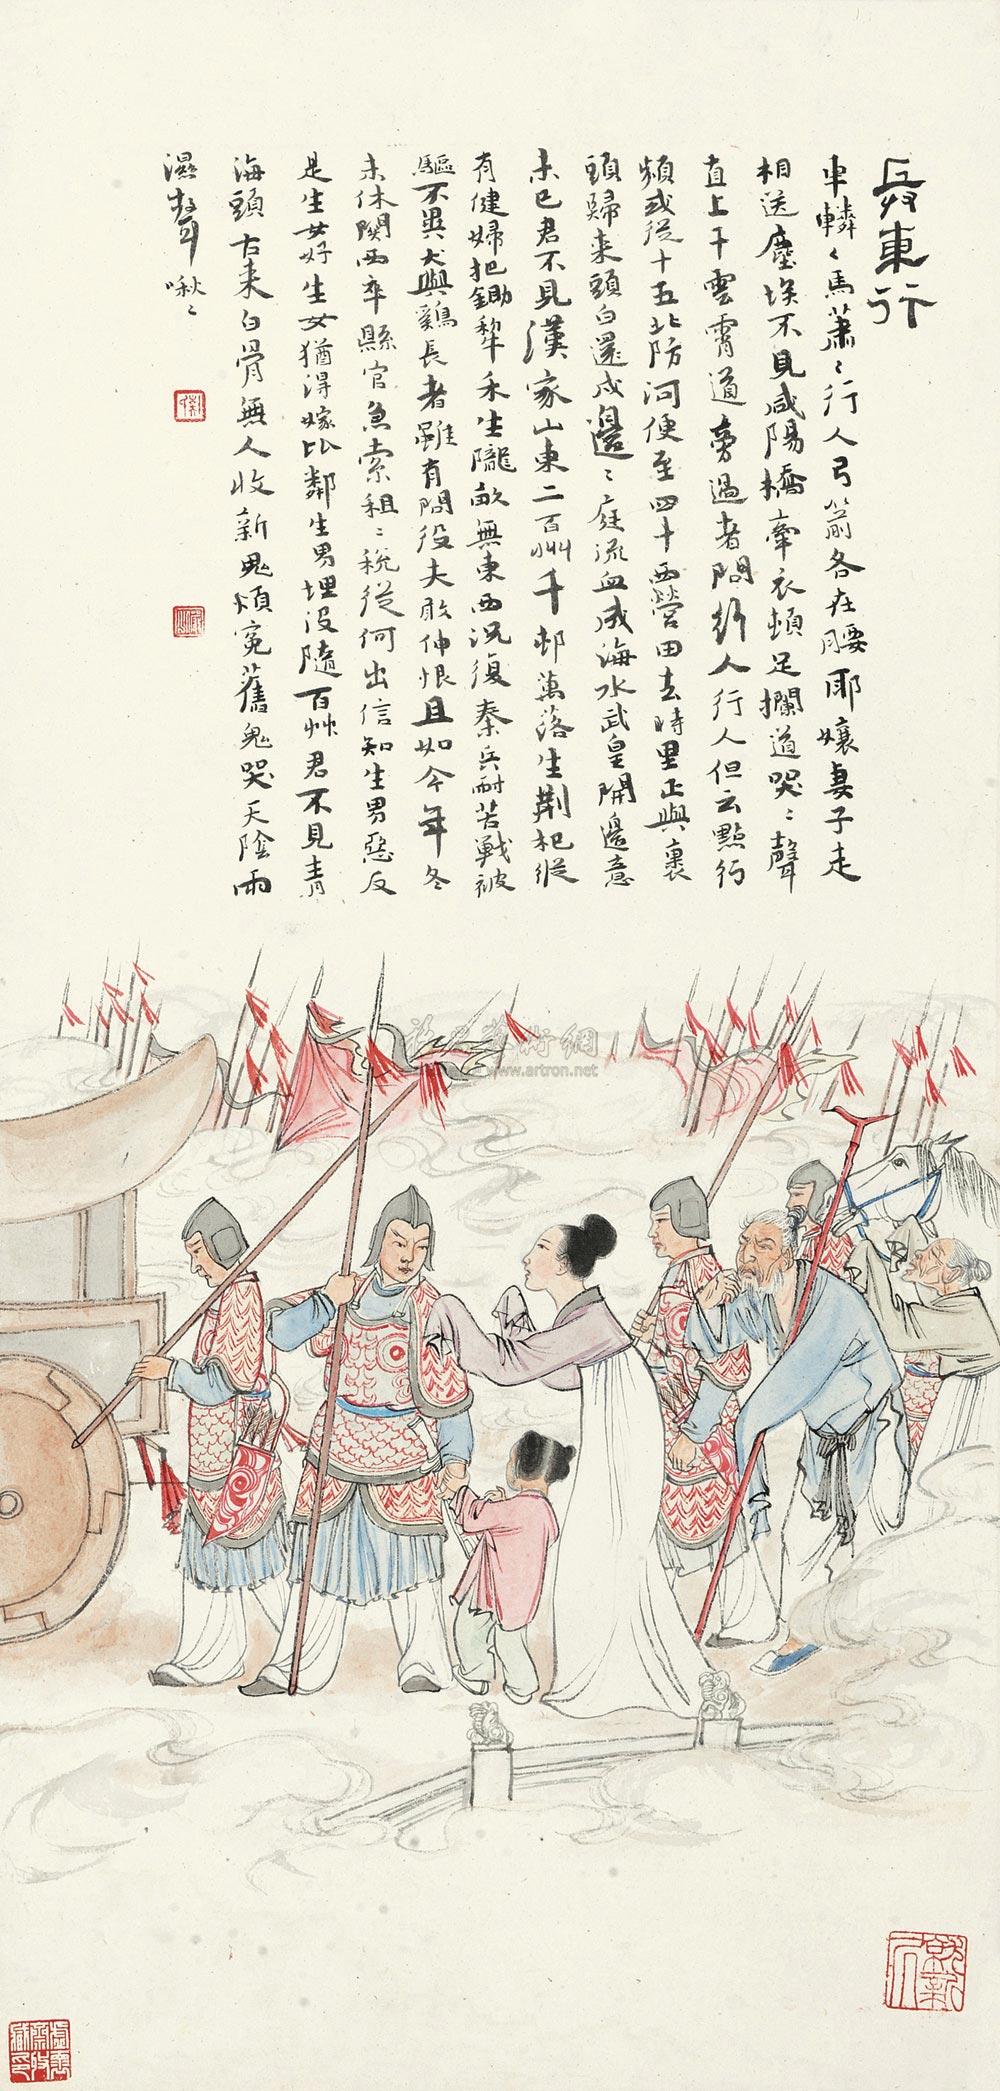 兵車行
車轔々馬蕭〻行人弓箭各在腰耶孃妻子走
相送塵埃不見咸陽橋牽衣頓足攔道哭〻聲
直上干雲霄道旁過者問行人行人但云點行
頻或從十五北防河便至四十西營田去時里正與裹
頭歸來頭白還戍邊〻庭流血成海水武皇開邊意
未已君不見漢家山東二百州千邨萬落生荆杞縱
有健婦把鋤犂禾生隴畝無東西況復秦兵耐苦戰被
驅不異犬與鷄長者雖有問役夫敢伸恨且如今年冬
未休關西卒縣官急索租〻稅從何出信知生男惡反
是生女好生女猶得嫁比鄰生男埋沒隨百艸君不見青
海頭古來白骨無人收新鬼煩寃舊鬼哭天陰雨
濕聲啾〻
雅昌藝術網
www.artron.net